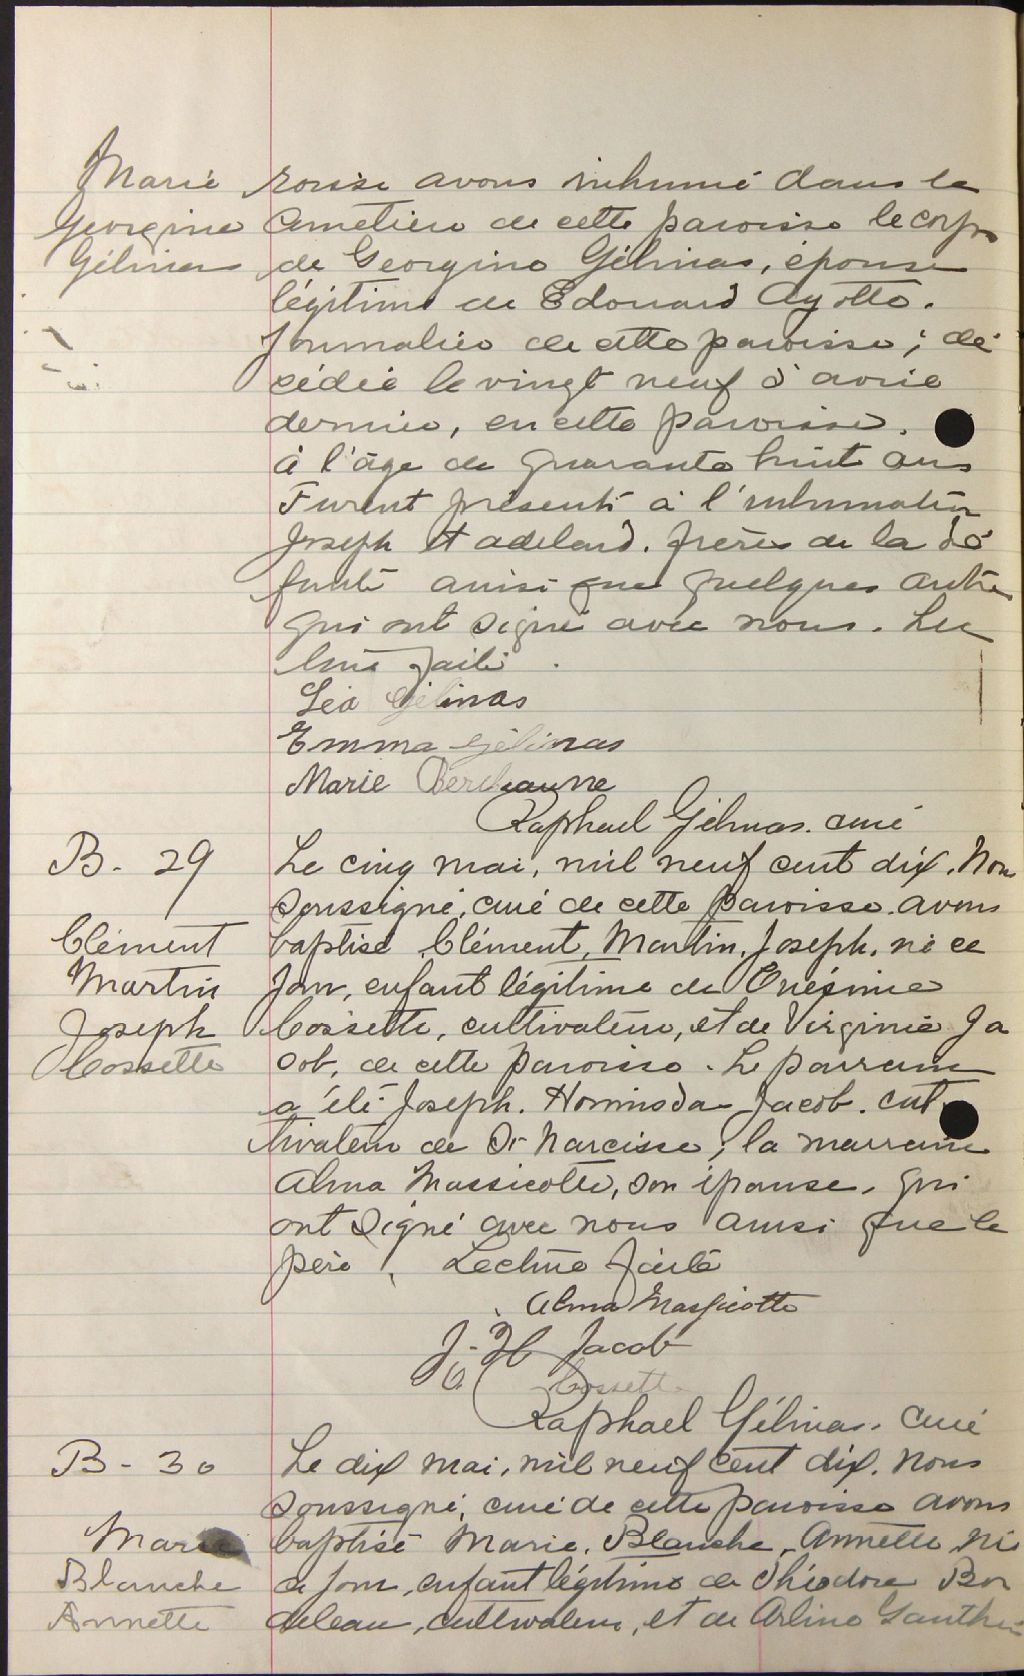 Marie
Georgine
Gélinas
roisse avons inhumé dans le
cimetière de cette paroisse le corps
de Georgine Gélinas, épouse
légitime de Edouard Ayotte.
journalier de cette paroisse ; dé
cédée le vingt neuf d'avril
dernier, en cette paroisse.
à l'âge de quarante huit ans
Furent présents à l'inhumation
Joseph et adelard. frères de la dé
funte ainsi que quelques autres
qui ont signé avec nous. Lec
ture faite.
Léa Gélinas
Emma Gélinas
Marie Bercheaume
Raphael Gélinas. curé
B. 29
Clément
Martin
Joseph
Cossette
Le cinq mai, mil neuf cent dix. Nous
soussigné, curé de cette paroisse. avons
baptisé Clément, Martin, Joseph, né ce
jour, enfant légitime de Onésime
Cossette, cultivateur, et de Virginie Ja
cob, de cette paroisse. Le parrain
a été Joseph. Hormisdas Jacob. cul
tivateur de St Narcisse ; la marraine
Alma Massicotte, son épouse. qui
ont signé avec nous ainsi que le
père. Lecture faite
Alma Massicotte
J-H Jacob
O. Cossette
Raphael Gélinas. curé
B - 30
Marie
Blanche
Annette
Le dix mai, mil neuf cent dix. Nous
soussigné, curé de cette paroisse avons
baptisé Marie, Blanche, Annette, né
ce jour, enfant légitime de Théodore Bor
deleau, cultivateur, et de Arline